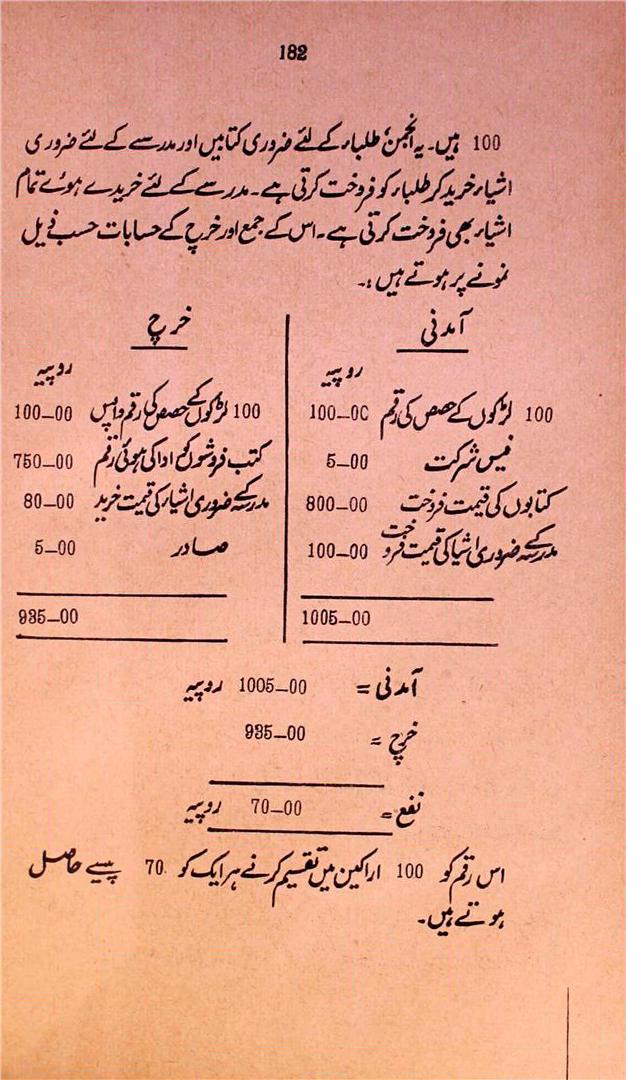 182
100 ہیں۔ یہ انجمن، طلباء کے لئے ضروری کتابیں اور مدرسے کے لئے ضروری
اشیاء خرید کر طلباء کو فروخت کرتی ہے۔ مدرسے کے لئے خریدے ہوئے تمام
اشیاء بھی فروخت کرتی ہے۔ اس کے جمع اور خرچ کے حسابات حسب ذیل
نمونے پر ہوتے ہیں :۔
آمدنی
روپیہ
100 لڑکوں کے حصص کی رقم 100-00
فیس شرکت 5-00
کتابوں کی قیمت فروخت 800-00
مدرسہ کے ضروری اشیا کی قیمت فروخت 100-00
1005-00
خرچ
روپیہ
100 لڑکوں کے حصص کی رقم واپس 100-00
کتب فروشوں کو ادا کی ہوئی رقم 750-00
مدرسہ کے ضروری اشیاء کی قیمت خرید 80-00
صادر 5-00
935-00
آمدنی = 1005-00 روپیہ
خرچ = 935-00
نفع = 70-00 روپیہ
اس رقم کو 100 اراکین میں تقسیم کرنے ہر ایک کو 70 پیسے حاصل
ہوتے ہیں۔